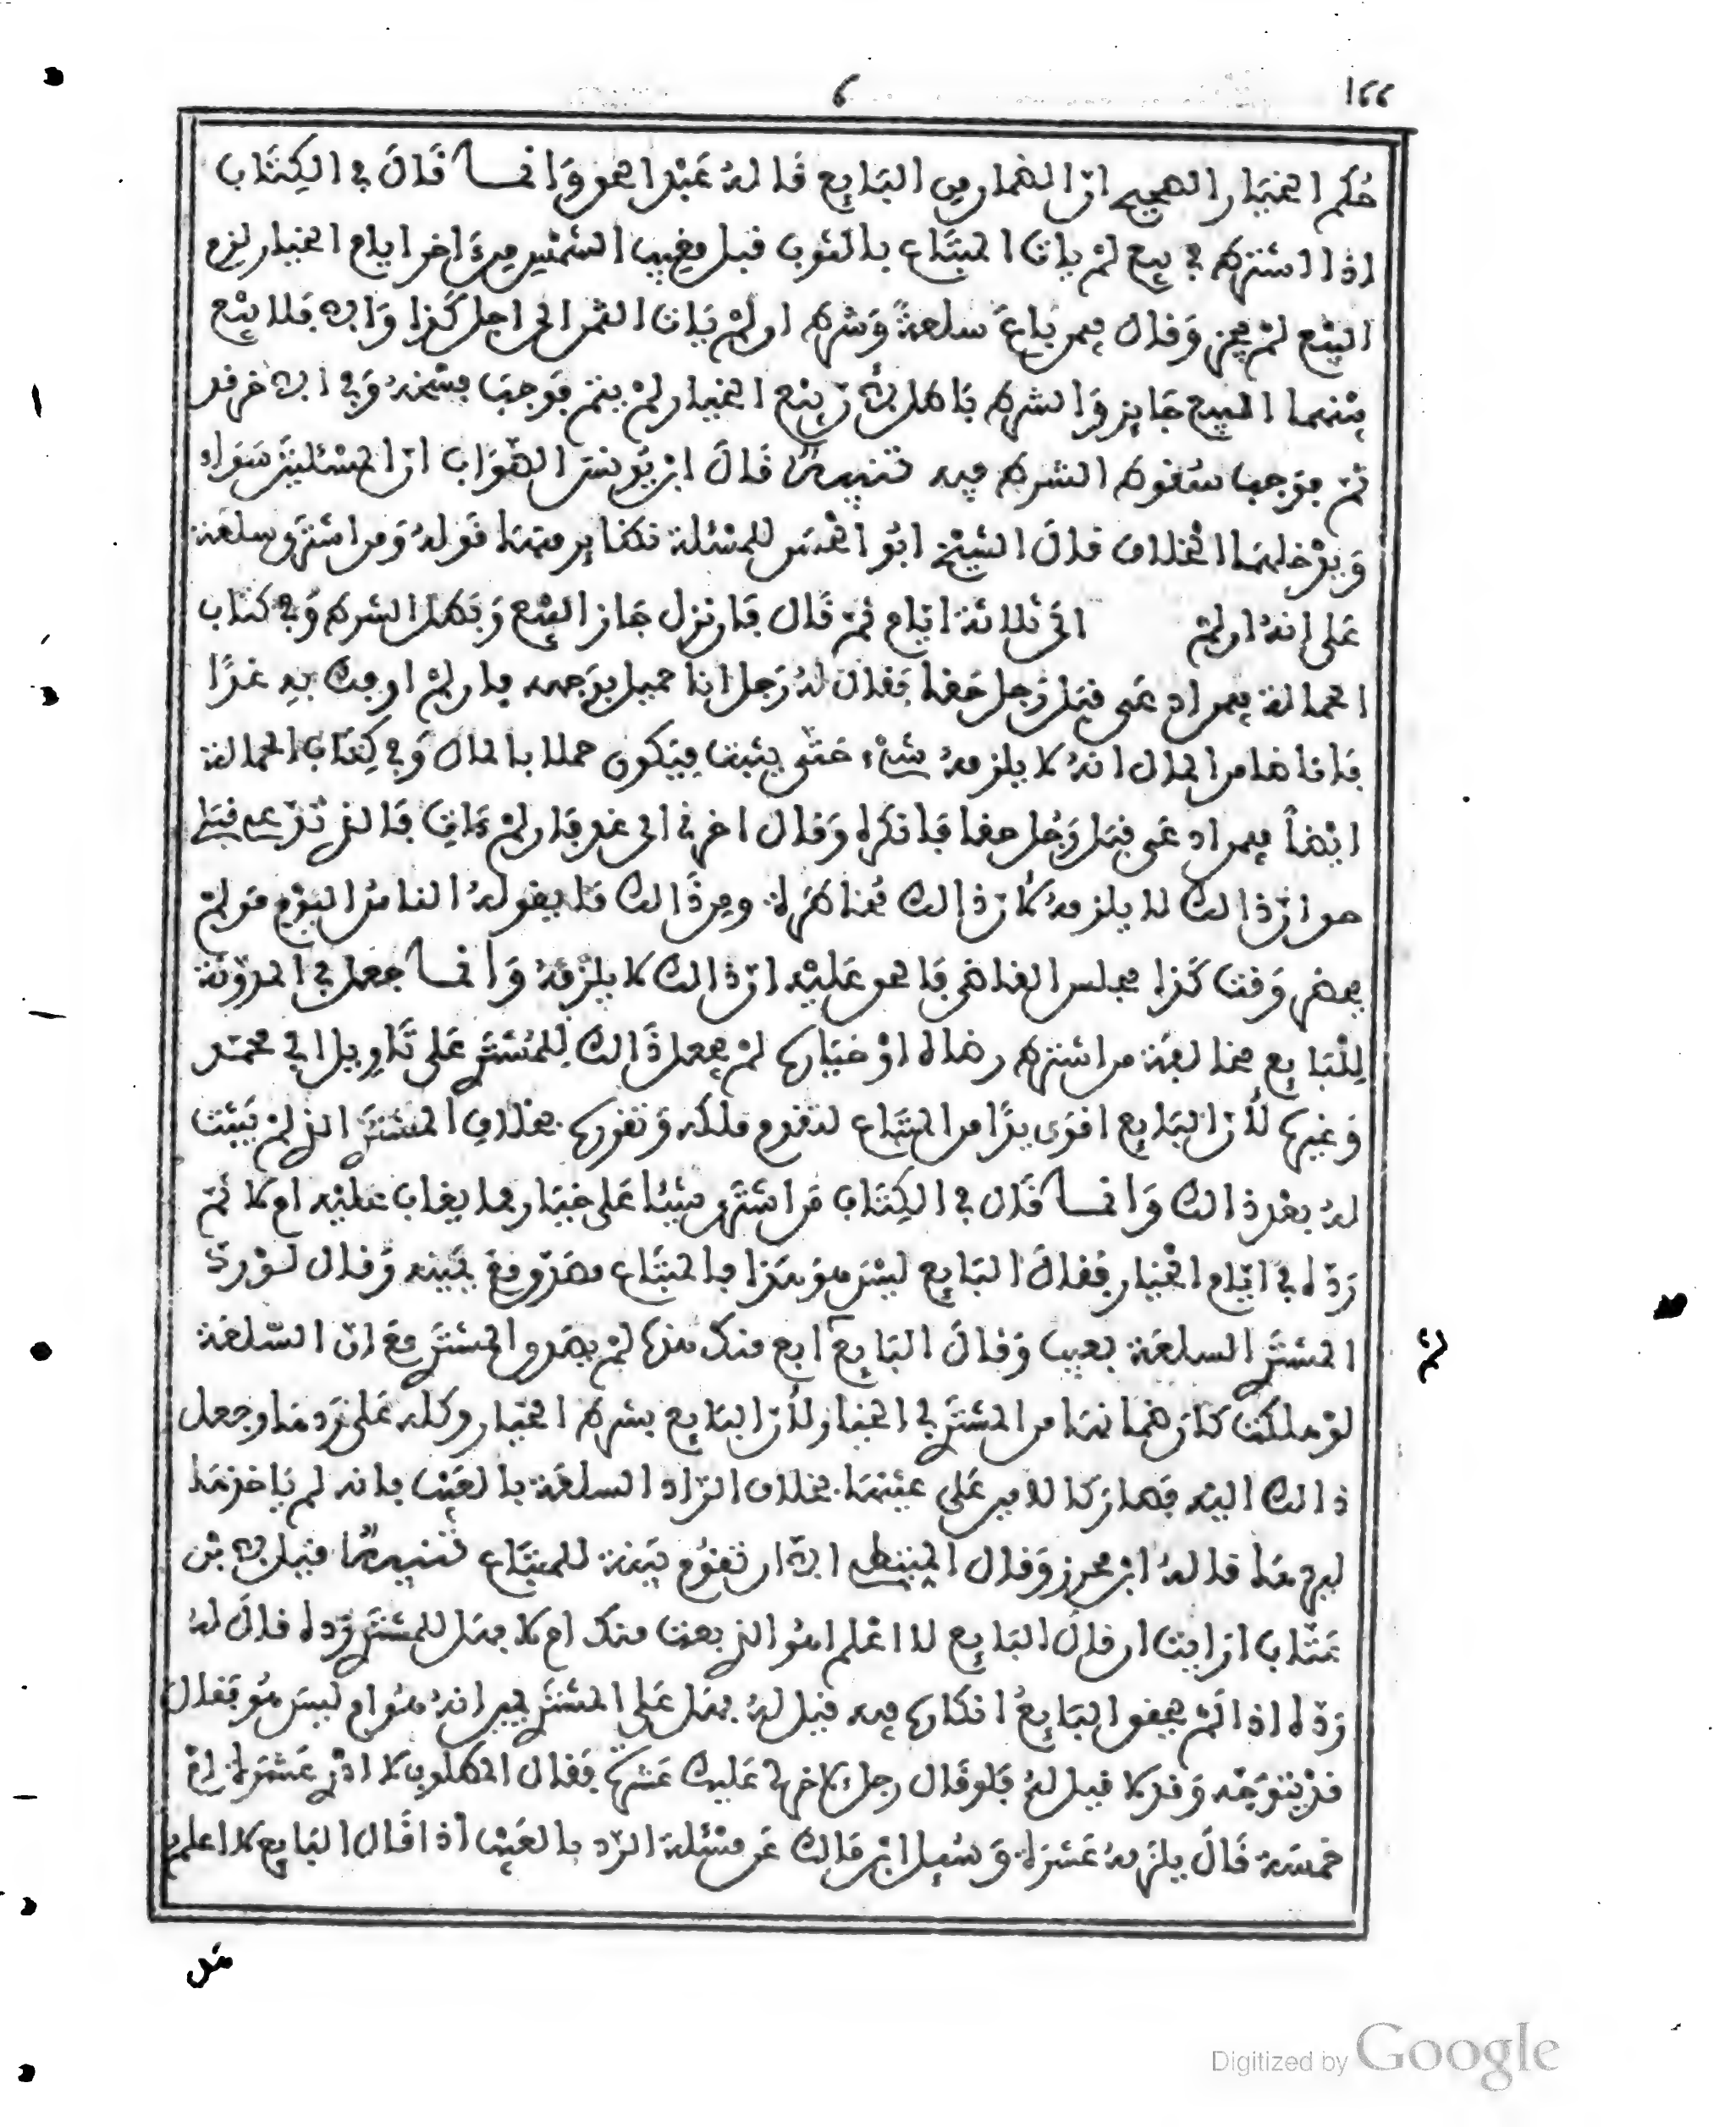 166 6
حُكم الخيار الصحيح ان الضمان من البايع قاله عبد الحق وانما قال في الكتاب
اذا اشترط في بيع لم يات المبتاع بالثوب قبل مغيب الشمس من اخر ايام الخيار لزم
البيع لم يجز وقال فيمن باع سلعة وشرط ان لم يات الثمن الى اجل كذا والا فلا بيع
بينهما البيع جايز والشرط باطل لان بيع الخيار لم يتم فوجب فسخه وفي الاخر قد
تم فوجب سقوط الشرط فيه تنبيه قال ابن يونس الصواب ان المسئلتين سواء
ويدخلهما الخلاف قال الشيخ ابو الحسن للمسئلة نظاير منها قوله ومن اشترى سلعة
على انه ان لم الى ثلاثة ايام ثم قال فان نزل جاز البيع وبطل الشرط وفي كتاب
الحمالة فيمن ادعى قبل رجل حقا فقال له رجل انا حميل بوجهه فان لم اوفك به غدا
فانا ضامن المال انه لا يلزمه شيء حتى يثبت فيكون حملا بالمال وفي كتاب الحمالة
ايضا فيمن ادعى قبل رجل حقا فانكره وقال اخرني الى غد فان لم ءاتك فالذي تدعيه قبلي
حق ان ذالك لا يلزمه لان ذالك مخاطرة ومن ذالك ما يقوله الناس اليوم من لم
يحضر وقت كذا مجلس القاضي فالحق عليه ان ذالك لا يلزمه وانما جعل في المدونة
للبايع مخالفة من اشترط رضاه او خياره لم يجعل ذالك للمشتري على تاويل ابي محمد
وغيره لان البايع اقوى يدا من المبتاع لتقدم ملكه وتقرره بخلاف المشتري الذي لم يثبت
له بعد ذالك وانما قال في الكتاب من اشترى شيئا على خيار مما يغاب عليه ام لا ثم
رده في ايام الخيار فقال البايع ليس هو هذا فالمبتاع مصدق مع يمينه وقال لو رد
المشتري السلعة بعيب وقال البايع لم ابع منك هذا لم يصدق المشتري مع ان السلعة
لو هلكت كان ضمانها من المشتري في الخيار لان البايع بشرط الخيار وكله على ردها وجعل
ذالك اليه فصار كالامين على عينها بخلاف الراد السلعة بالعيب فانه لم ياخذها
ليردها قاله ابن محرز وقال المتيطي الا ان تقوم بينة للمبتاع تنبيه قيل لابن
عتاب ارايت ان قال البايع لا اعلم اهو الذي بعت منك ام لا هل للمشتري رده قال له
رده اذا لم يحقق البايع انكاره فيه قيل له هل على المشتري يمين انه هو ام ليس هو فقال
قد يتوجه وقد لا قيل له فلو قال رجل لاخر لي عليك عشرة فقال المطلوب لا ادري عشرة ام
خمسة قال يلزمه عشرة وسيل ابن مالك عن مسئلة الرد بالعيب اذا قال البايع لا اعلم
لم
هل
Digitized by Google